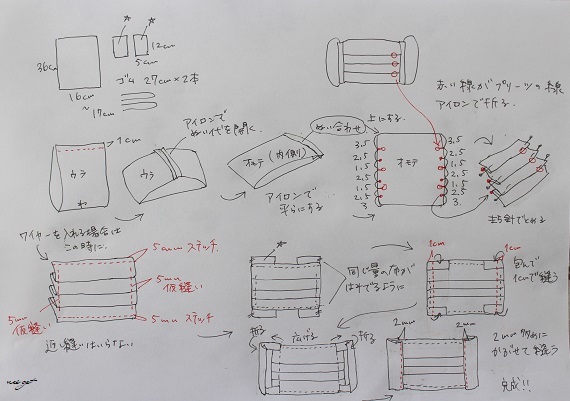 ☆ ☆
36cm
16cm
～17cm
12cm
5cm
ゴム 27cm×2本
赤い線がプリーツの線
アイロンで折る.
1cm
ウラ
わ
アイロンで
ぬい代を開く.
ウラ
オモテ(内側)
アイロンで
平らにする
ぬい合わせ
上にする.
3.5
2.5
1.5
2.5
1.5
2.5
3
オモテ
3.5
2.5
1.5
2.5
1.5
2.5
3.
まち針でとめる
ワイヤーを入れる場合は
この時に.
5mmステッチ.
5mm
仮縫い
5mm
仮縫い
5mmステッチ
返し縫いはいらない.
☆
同じ量の布が
はみでるように
1cm
1cm
包んで
1cmで縫う
折る
広げる
折る
2mm
2mm
2mm
かぶせて縫う
完成!!